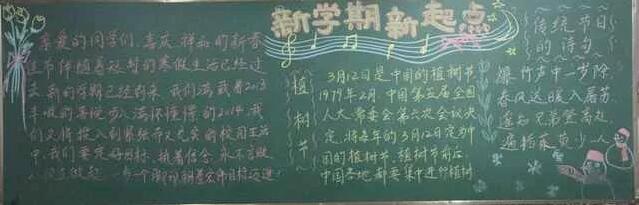 新学期新起点
亲爱的同学们，喜庆祥和的新春
佳节伴随着短暂的寒假生活已经过
去，新的学期已经到来，我们满载着2013
丰收的喜悦步入满怀憧憬的2014，我
们又将投入到紧张而又充实的校园生活
中，我们要定好目标，执着信念，永不言败
植树节
3月12日是中国的植树节
1979年2月，中国第五届全国
人大常委会第六次会议决
定，将每年的3月12日定为中
国的植树节。植树节前后，
中国各地都要集中进行植树
传统节日
的诗句
爆竹声中一岁除
春风送暖入屠苏
遥知兄弟登高处
遍插茱萸少一人